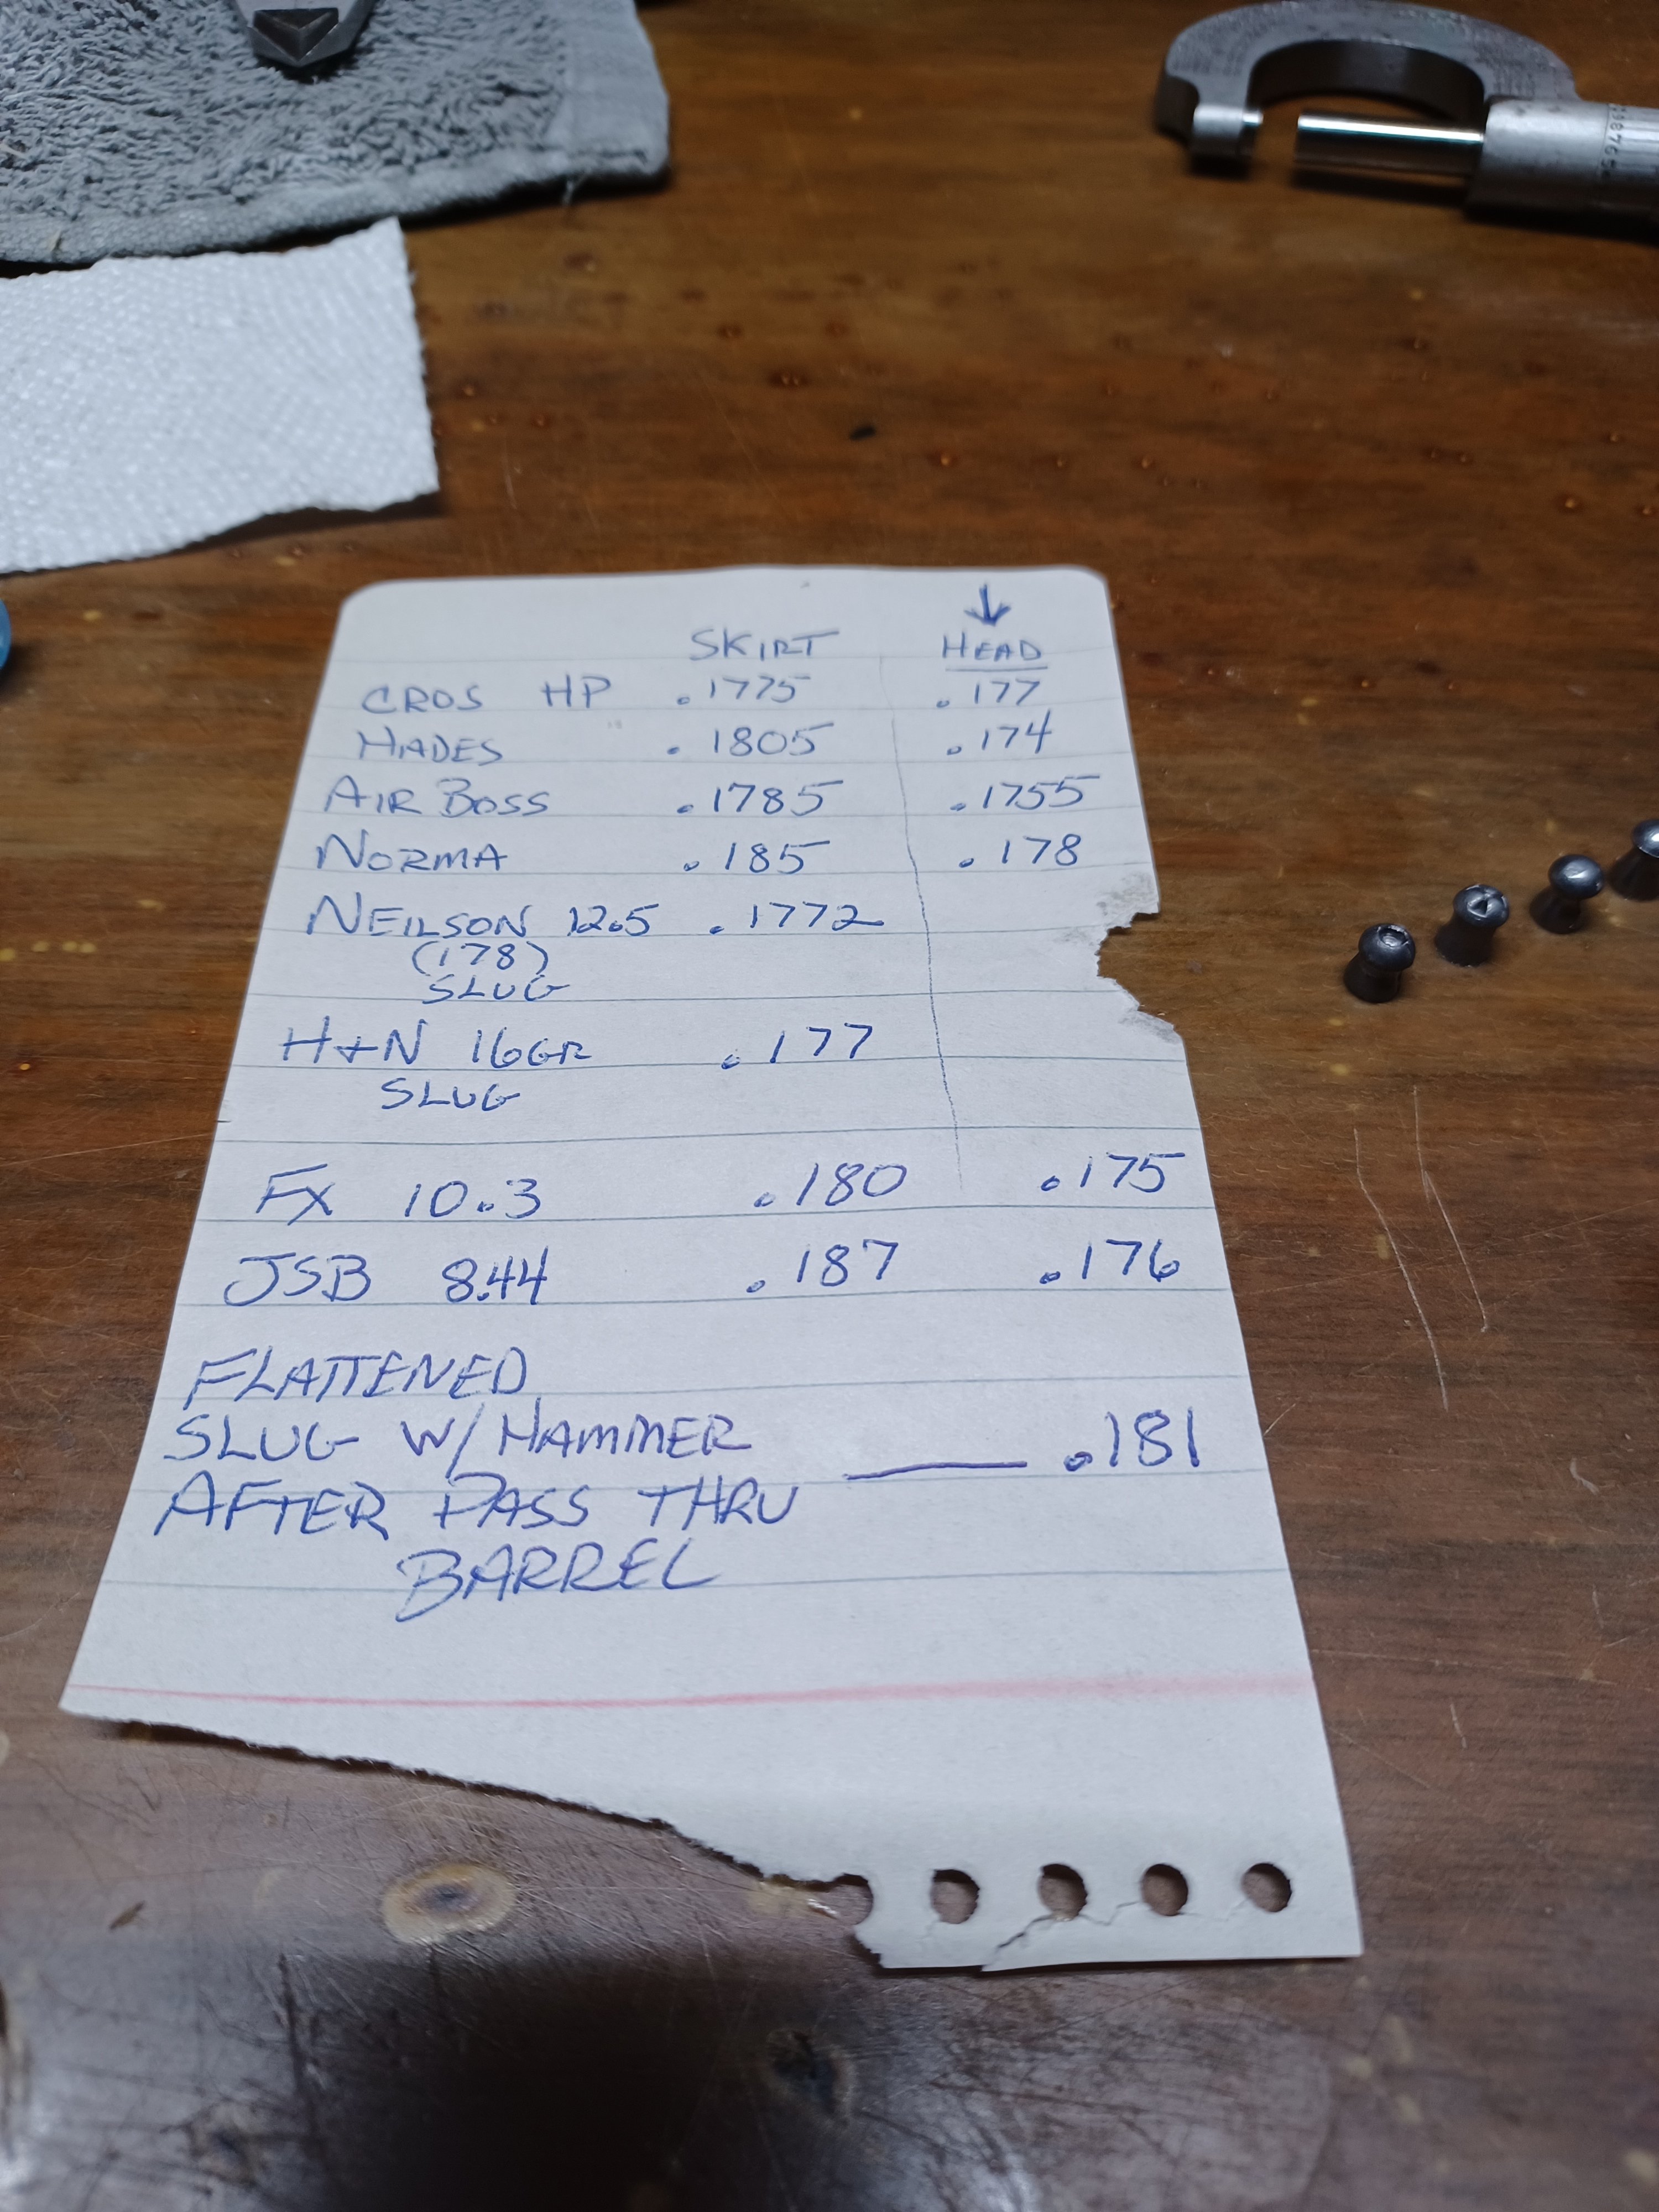 SKIRT HEAD
CROS HP .1775 .177
HADES .1805 .174
AIR BOSS .1785 .1755
NORMA .185 .178
NEILSON 12.5 .1772
(178)
SLUG
H+N 16GR .177
SLUG
FX 10.3 .180 .175
JSB 8.44 .187 .176
FLATTENED
SLUG W/HAMMER .181
AFTER PASS THRU
BARREL